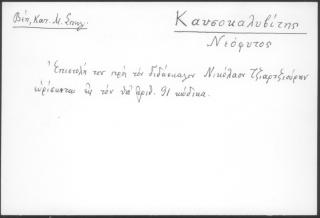 Βέη, Κατ. Μ. Σπηλ.
Καυσοκαλυβίτης
Νεόφυτος
Ἐπιστολή του πρὸ τὸν διδάσκαλον Νικόλαον Τζιαρτζιούλην
εὑρίσκεται ἐς τὸν ὑπ' ἀριθ. 91 κώδικα.